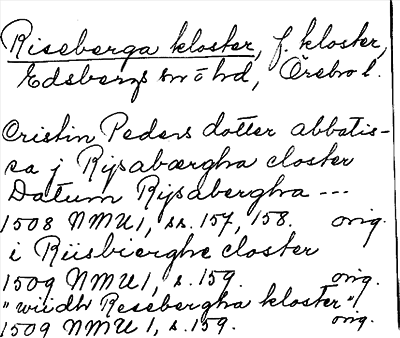 Riseberga kloster, f. kloster,
Edsbergs sn o hd, Örebro l.
Cristin Peders dotter abbatis-
sa j Rijsabærgha closter
Datum Rijsabergha ---
1508 NMU 1, ss. 157, 158. orig.
i Riisbierghe closter
1509 NMU 1, s. 159. orig.
"wiidh Resebergha kloster"
1509 NMU 1, s. 159. orig.